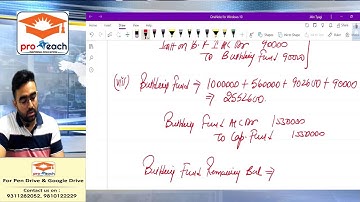 OneNote for Windows 10
pro
Teach
Int on B.F I A/c Dr 90000
To Building Fund 90000
(viii) Building Fund ⇒ 1000000 + 560000 + 902600 + 90000
⇒ 2552600.
Building Fund A/c Dr 1550000
To Cap. Fund 1550000
Building Fund Remaining Bal ⇒
For Pen Drive & Google Drive
Contact us :
9311282052, 9810122229